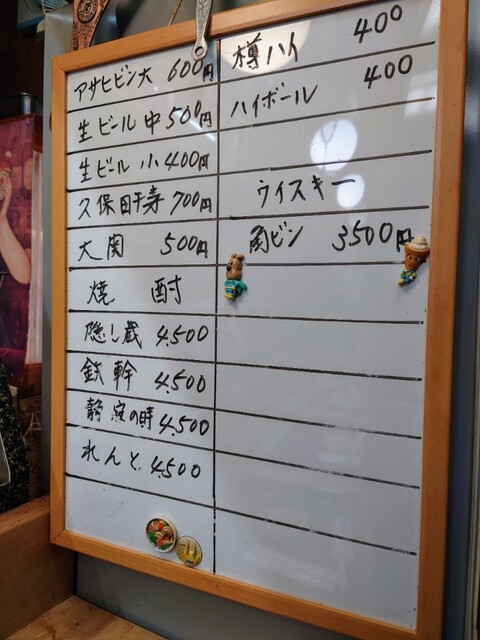 アサヒビン大 600円
生ビール中 500円
生ビール小 400円
久保田千寿 700円
大関 500円
焼酎
隠し蔵 4.500
鉄幹 4.500
静寂の時 4.500
れんと 4.500
樽ハイ 400
ハイボール 400
ウイスキー
角ビン 3500円